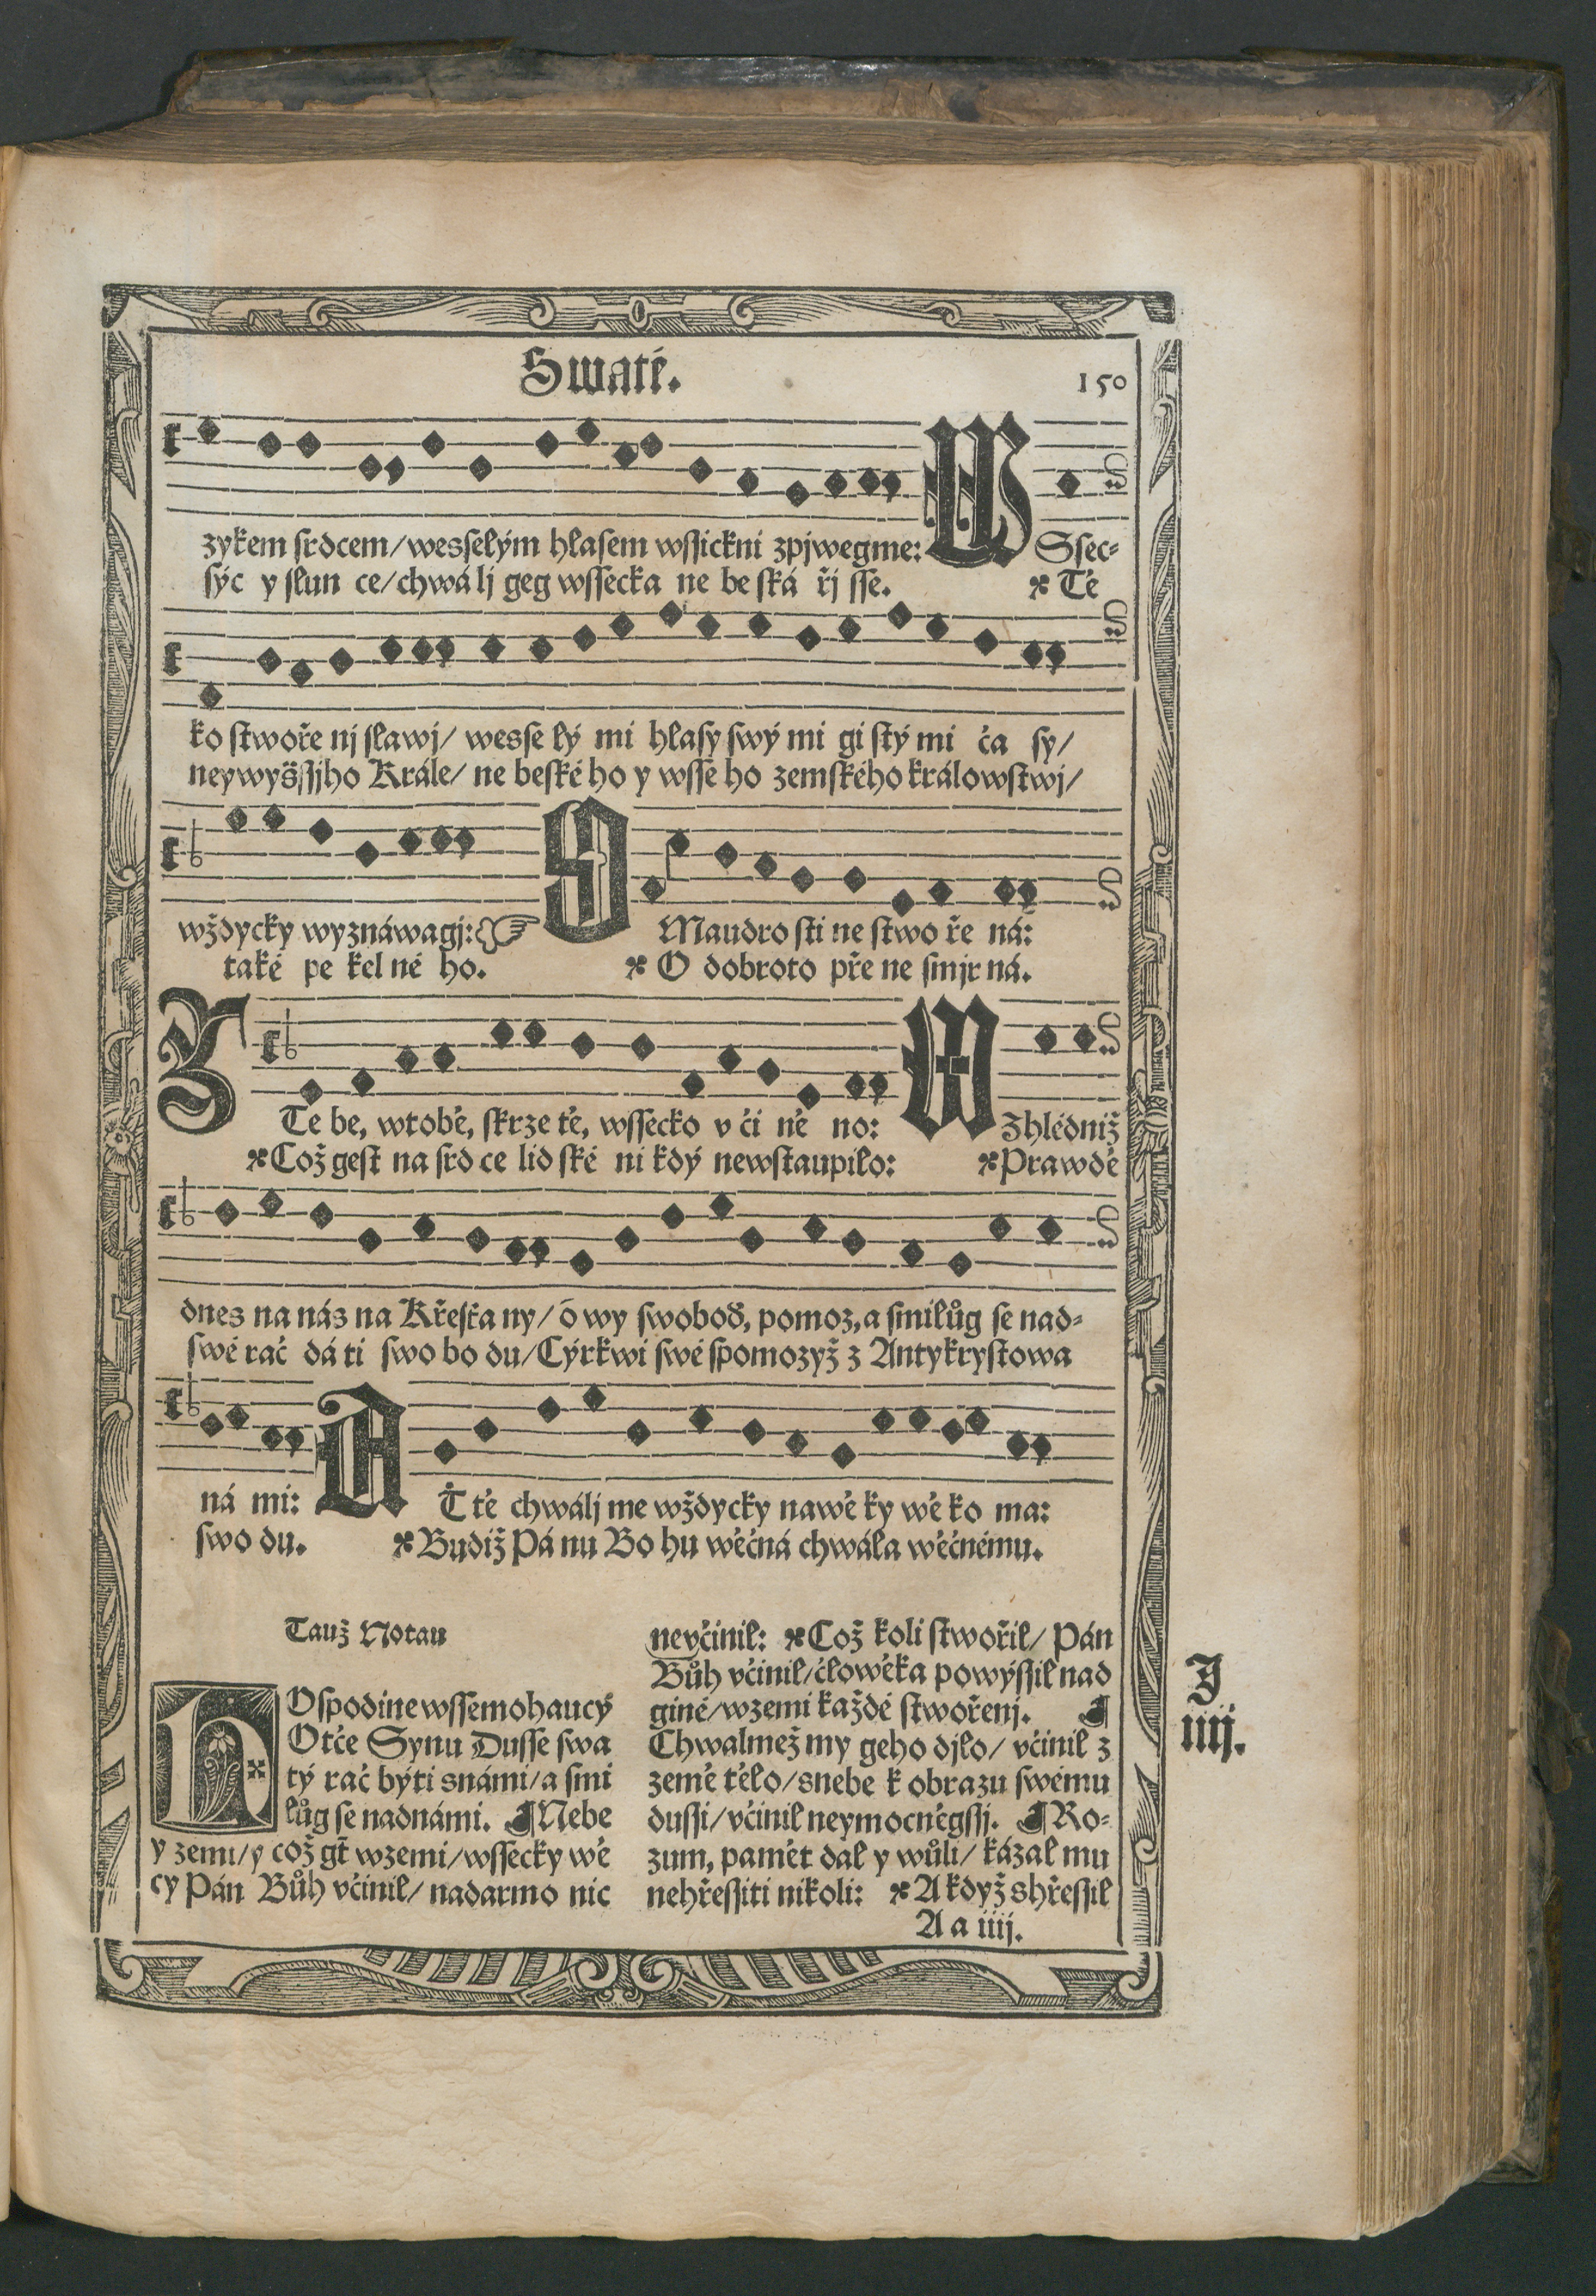 Swaté.
150
zykem srdcem/wesselým hlasem wssickni zpjwegme: WSsec-
sýc y slun ce/chwá lj geg wssecka ne be ská řj sse. ※ Tě
ko stwoře nj slawj/ wesse lý mi hlasy swý mi gi stý mi ča sy/
neywyšssjho Krále/ ne beské ho y wsse ho zemského králowstwj/
wždycky wyznáwagj: O Maudro sti ne stwo ře ná:
také pe kel né ho. ※ O dobroto pře ne smjr ná.
Z Te be, wtobě, skrze tě, wssecko v či ně no: WZhlédniž
※ Což gest na srd ce lid ské ni kdý newstaupilo: ※ Prawdě
dnes na nás na Křesťa ny/ ó wy swoboď, pomoz, a smilůg se nad-
swé rač dá ti swo bo du/ Cýrkwi swé spomozyž z Antykrystowa
ná mi: AŤ tě chwálj me wždycky nawě ky wě ko ma:
swo du. ※ Budiž Pá nu Bo hu wěčná chwála wěčnému.
Tauž Notau
HOspodine wssemohaucý
Otče Synu Dusse swa
tý rač býti snámi/a smi
lůg se nadnámi. ¶ Nebe
y zemi/y což gt̃ wzemi/wssecky wě
cy Pán Bůh včinil/ nadarmo nic
nevčinil: ※ Což koli stwořil/ Pán
Bůh včinil/člowěka powýssil nad
giné/wzemi každé stwořenj. ¶
Chwalmež my geho djlo/ včinil z
země tělo/snebe k obrazu swému
dussi/včinil neymocněgssj. ¶ Ro-
zum, pamět dal y wůli/ kázal mu
nehřessiti nikoli: ※ A když shřessil
A a iiij.
J
iiij.